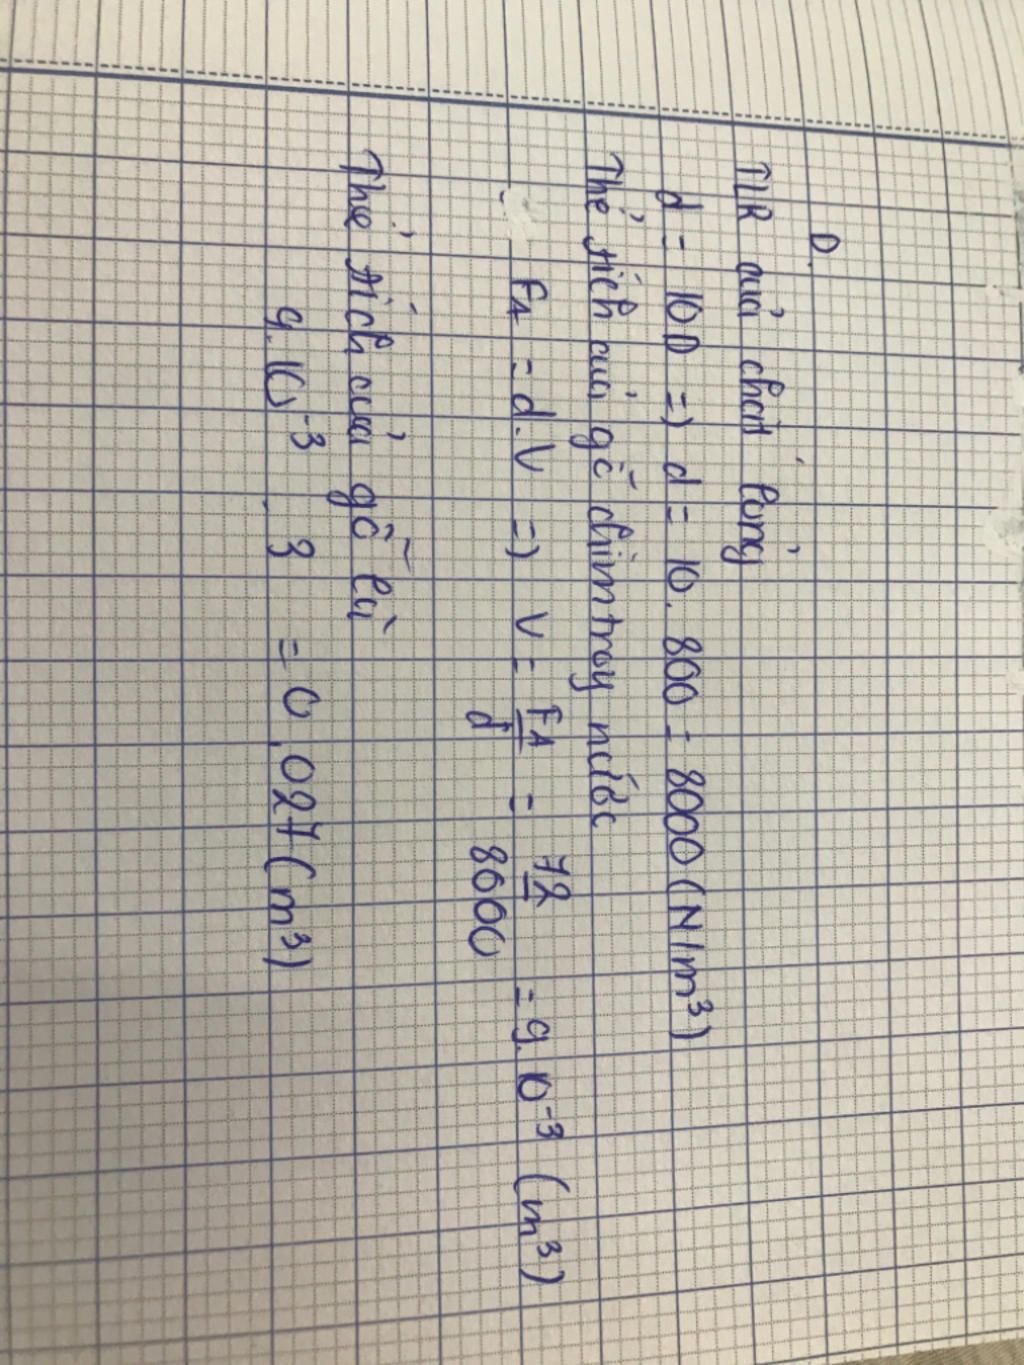 D.
TLR của chất lỏng
d = 10D => d = 10.800 = 8000 (N/m³)
Thể tích của gỗ chìm trog nước
FA = d.V => V = FA/d = 72/8000 = 9.10⁻³ (m³)
Thể tích của gỗ là
9.10⁻³ . 3 = 0,027 (m³)